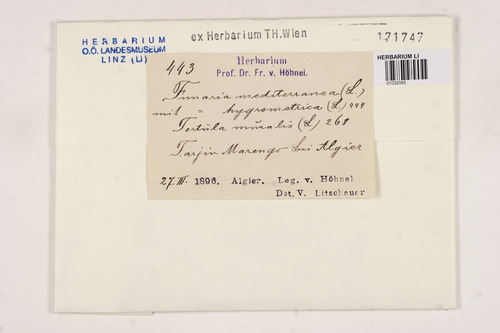 HERBARIUM
O.Ö. LANDESMUSEUM
LINZ (LI)
ex Herbarium TH.Wien
171747
HERBARIUM LI
443
Herbarium
Prof. Dr. Fr. v. Höhnel.
Funaria mediterranea (L.)
mit " hygrometrica (L.) 449
Tortula muralis (L.) 268
Marengo bei Algier
27. III. 1896. Algier. Leg. v. Höhnel
Det. V. Litschauer